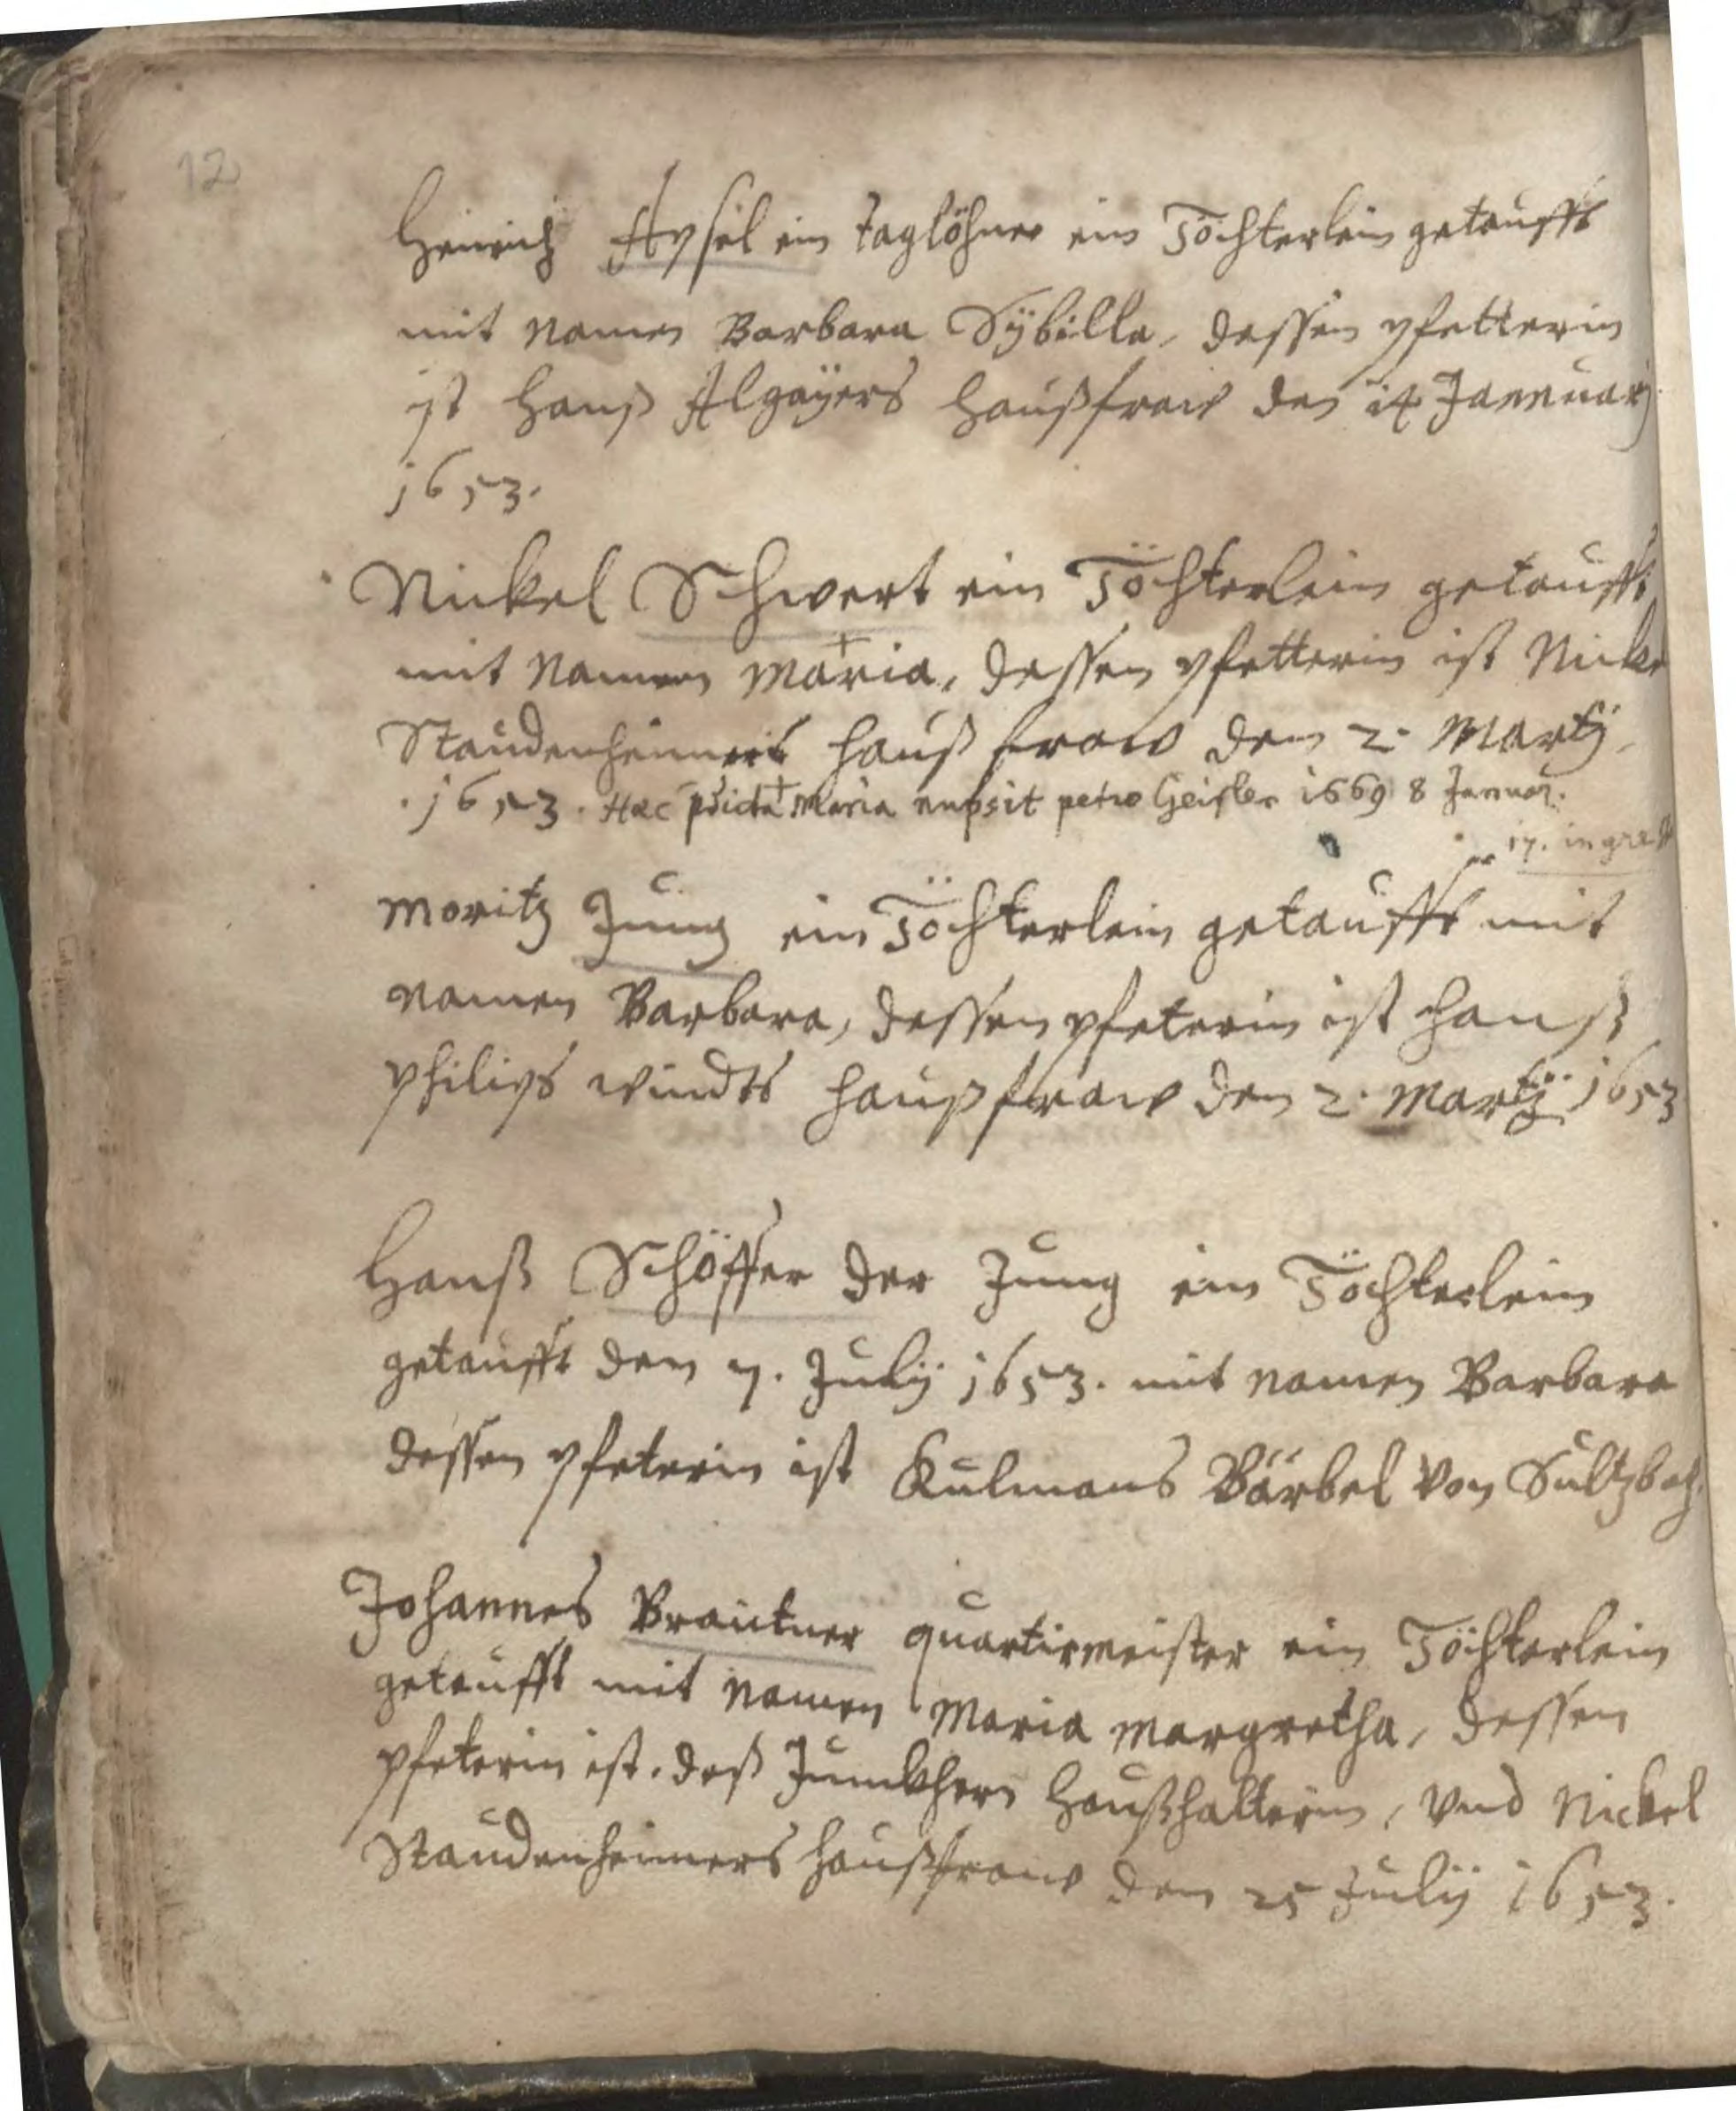 12
Heinrich Apfel ein taglöhner ein Töchterlein getaufft
mit namen Barbara Sÿbilla, dessen pfetterin
ist Hanß Algaÿers haußfraw den 14 Jannuarj
1653.
Nickel Schwert ein Töchterlein getaufft
mit Namen Maria, dessen pfetterin ist Nickel
Staudenheimers hauß fraw den 2. Martÿ
1653. Haec pdicta Maria nupsit petro Geisler 1669 8 Januar.
17.
Moritz Jung ein Töchterlein getaufft mit
namen Barbara, dessen pfeterin ist Hanß
philips windts haußfraw den 2. Martÿ 1653
Hanß Schöffer der Jung ein Töchterlein
getaufft den 7. Julÿ 1653. mit namen Barbara
dessen pfeterin ist Kulmans Bärbel von Sultzbach
Johannes Brautner quartirmeister ein Töchterlein
getaufft mit namen Maria Margretha, dessen
pfeterin ist. deß Junckhern Haußhalterin, vnd Nickel
Staudenheimers haußfraw den 25 Julÿ 1653.